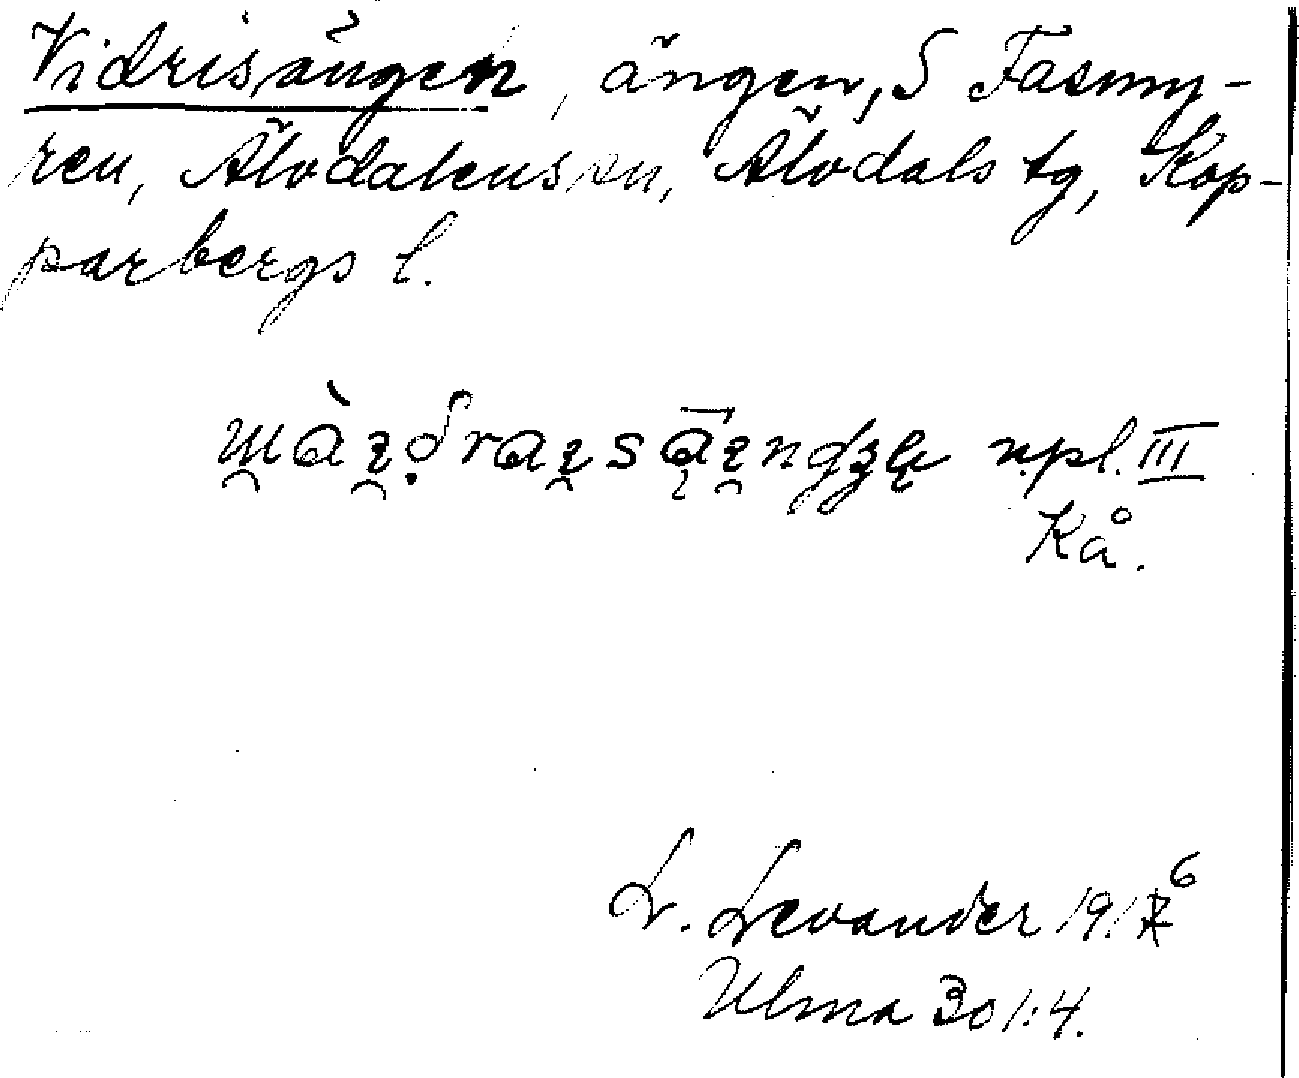 Vidrisängen, ängen, S Fasmy-
ren, Älvdalens sn, Älvdals tg, Kop-
parbergs l.
n.pl. III
Kå.
L. Levander 1916
Ulma 301:4.